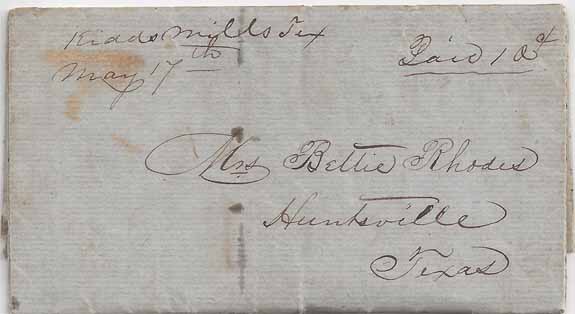 Kidds Mills Tex
May 17th
Paid 10¢
Mrs Bettie Rhodes
Huntsville
Texas